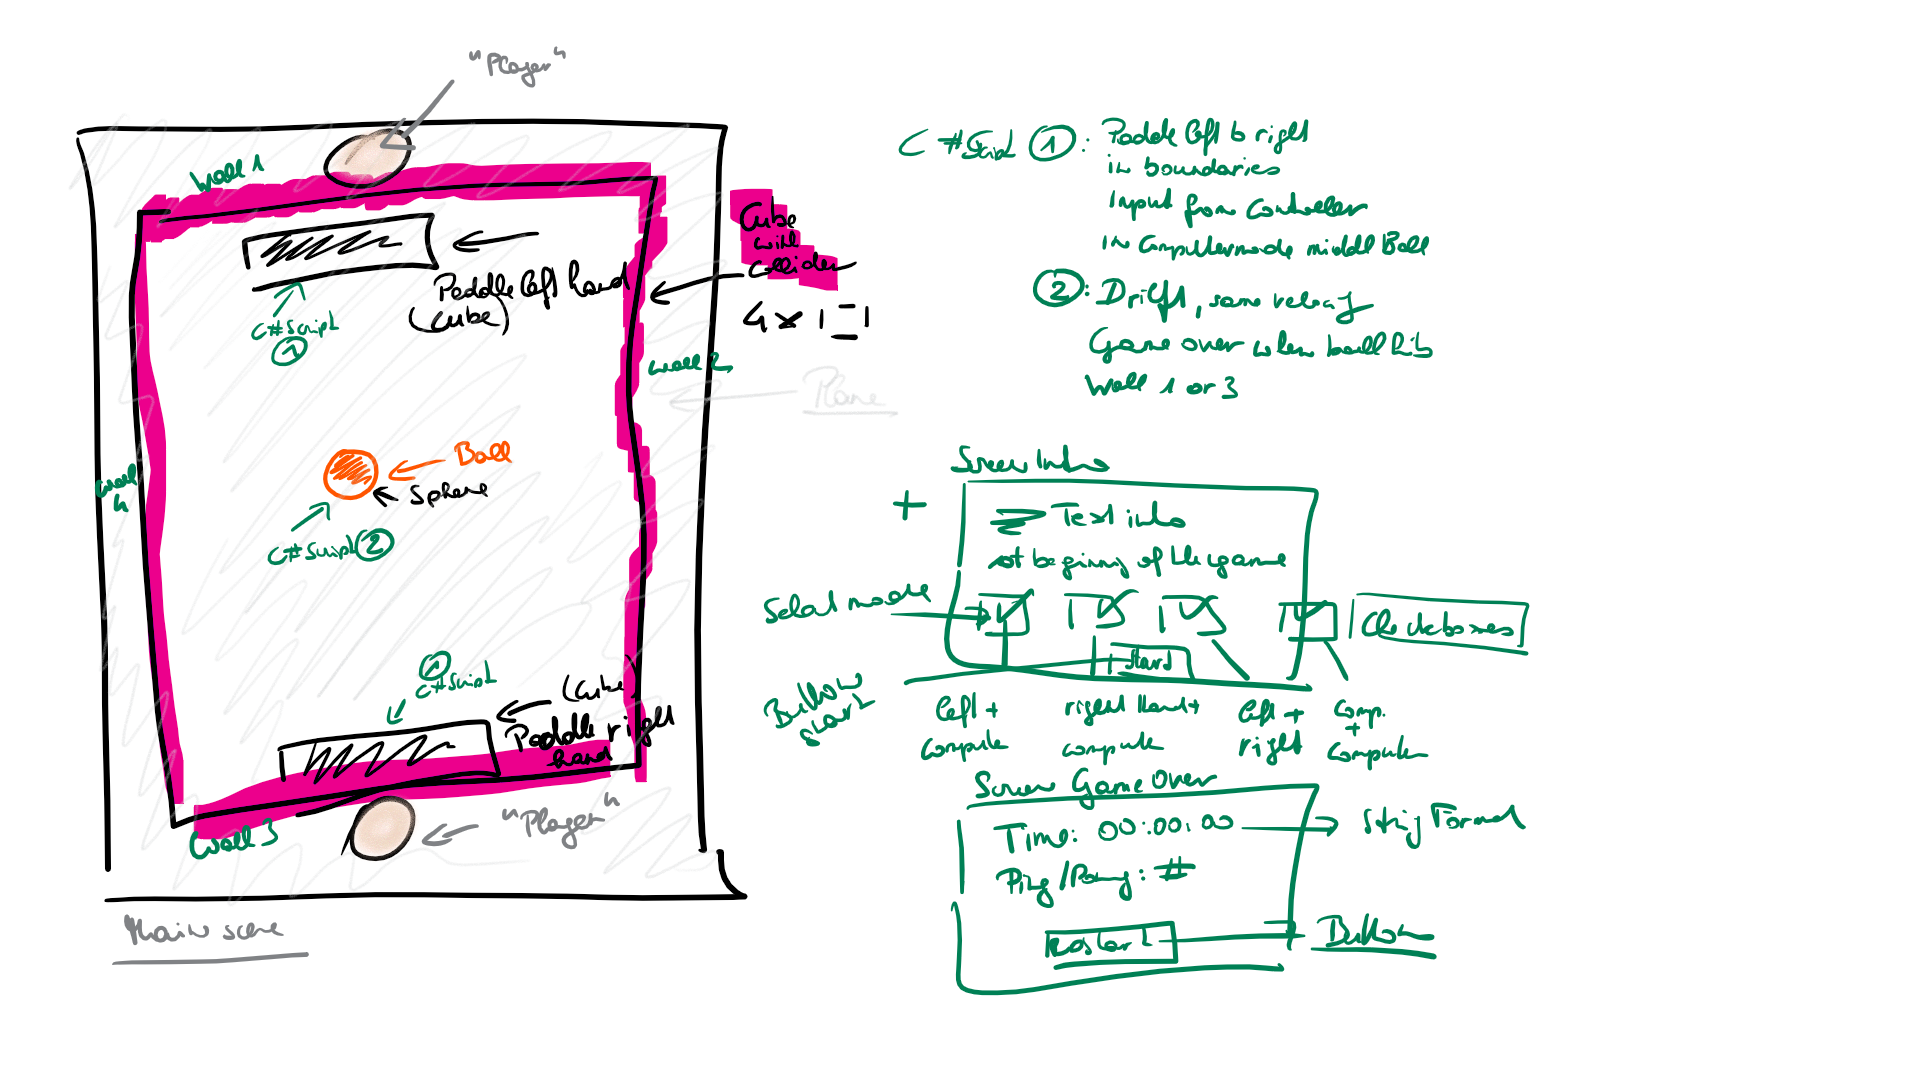 "Player"
Wall 1
Paddle left hand
(Cube)
C# Script
1
Cube
with
Collider
4 x
Wall 2
Plane
Ball
Sphere
C# Script 2
Wall 4
1
C# Script
(Cube)
Paddle right
hand
Wall 3
"Player"
Main scene
C # Script 1 : Paddle left to right
in boundaries
Input from Controller
in Computermode middle Ball
2 : Drift, same velocity
Game over when ball hits
Wall 1 or 3
Screen Intro
+
Text intro
at beginning of the game
Select mode
Checkboxes
Start
Button
start
left +
computer
right Hand +
computer
left +
right
Comp.
+
Computer
Screen Game Over
Time: 00:00:00
String Format
Ping/Pong: #
Restart
Button